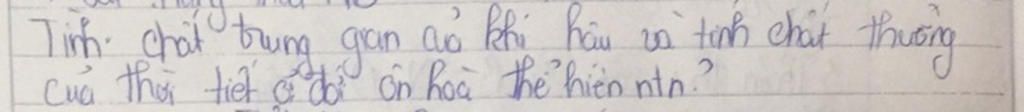 Tính chất trung gian củ khí hậu và tính chất thường
của thời tiết ở đới ôn hoà thể hiện ntn?